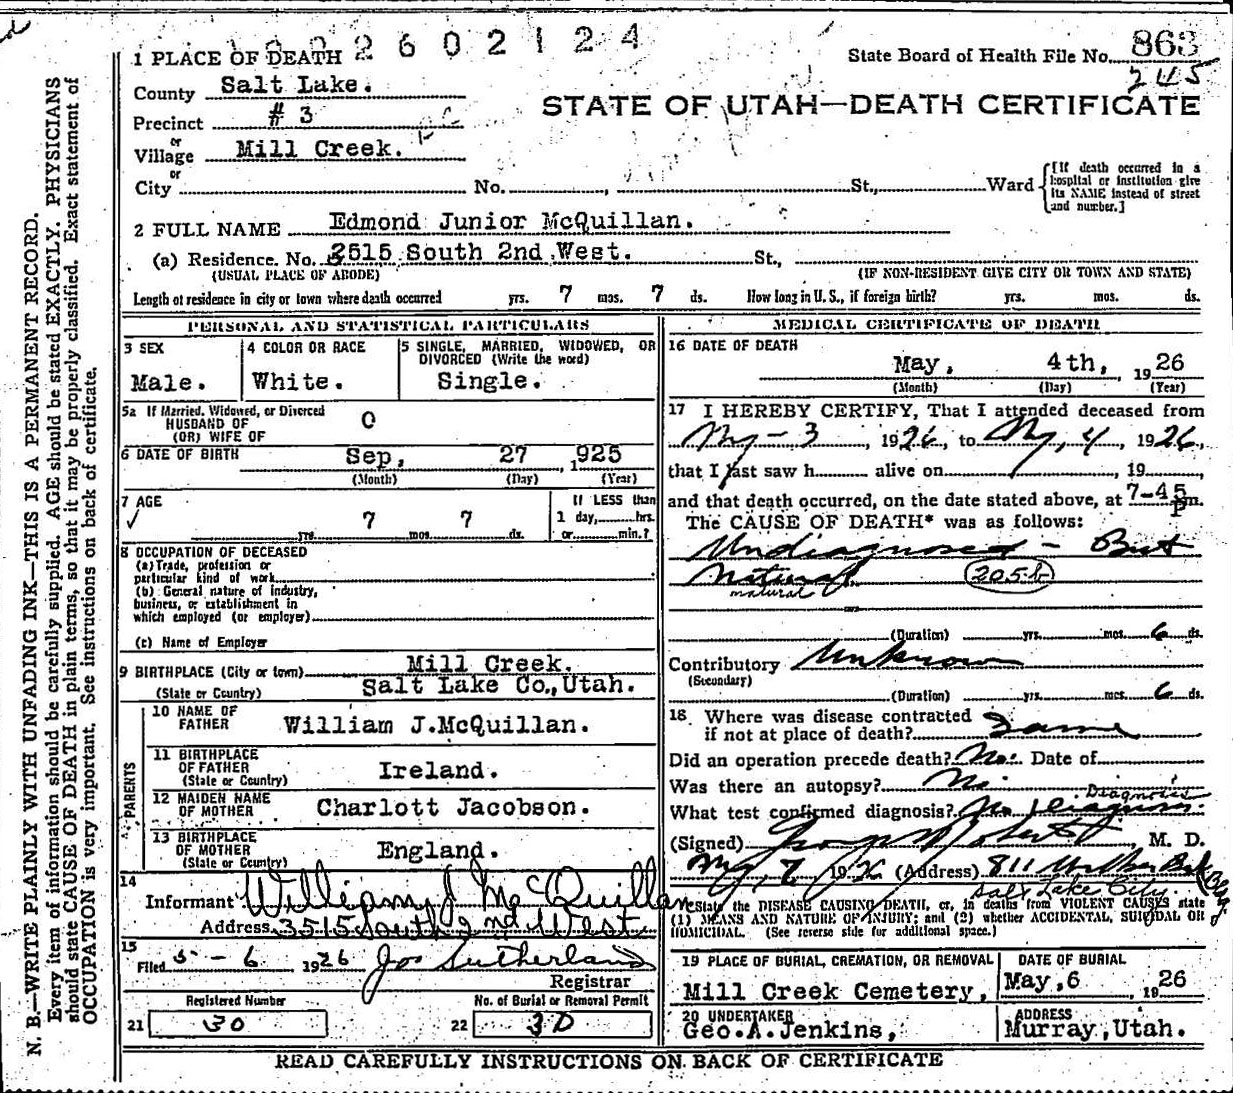 2602124
State Board of Health File No. 863
245
1 PLACE OF DEATH
County Salt Lake.
STATE OF UTAH—DEATH CERTIFICATE
Precinct # 3
or
Village Mill Creek.
or
City No. , St., Ward
[If death occurred in a hospital or institution give its NAME instead of street and number.]
2 FULL NAME Edmond Junior McQuillan.
(a) Residence. No. 3515 South 2nd West. St.,
(USUAL PLACE OF ABODE) (IF NON-RESIDENT GIVE CITY OR TOWN AND STATE)
Length of residence in city or town where death occurred yrs. 7 mos. 7 ds. How long in U. S., if foreign birth? yrs. mos. ds.
PERSONAL AND STATISTICAL PARTICULARS
3 SEX
Male.
4 COLOR OR RACE
White.
5 SINGLE, MARRIED, WIDOWED, OR
DIVORCED (Write the word)
Single.
5a If Married, Widowed, or Divorced
HUSBAND OF
(OR) WIFE OF
O
6 DATE OF BIRTH Sep, 27 , 1925
(Month) (Day) (Year)
7 AGE
✓
7 7
yrs. mos. ds.
If LESS than
1 day, hrs.
or min.?
8 OCCUPATION OF DECEASED
(a) Trade, profession or
particular kind of work
(b) General nature of industry,
business, or establishment in
which employed (or employer)
(c) Name of Employer
9 BIRTHPLACE (City or town) Mill Creek.
(State or Country) Salt Lake Co., Utah.
PARENTS
10 NAME OF
FATHER William J.McQuillan.
11 BIRTHPLACE
OF FATHER
(State or Country) Ireland.
12 MAIDEN NAME
OF MOTHER Charlott Jacobson.
13 BIRTHPLACE
OF MOTHER
(State or Country) England.
14
Informant William J McQuillan
Address 3515 South 2nd West
15
Filed 5-6 1926 Jos Sutherland
Registrar
Registered Number
21 30
No. of Burial or Removal Permit
22 30
MEDICAL CERTIFICATE OF DEATH
16 DATE OF DEATH
May, 4th, 1926
(Month) (Day) (Year)
17 I HEREBY CERTIFY, That I attended deceased from
My-3 1926, to My, 4, 1926,
that I last saw h alive on , 19
and that death occurred, on the date stated above, at 7-45 P m.
The CAUSE OF DEATH* was as follows:
Undiagnosed - But
Natural 205b
natural
(Duration) yrs. mos. 6 ds.
Contributory Unknown
(Secondary)
(Duration) yrs. mos. 6 ds.
18. Where was disease contracted
if not at place of death? Same
Did an operation precede death? No. Date of
Was there an autopsy? No
Diagnosis
What test confirmed diagnosis? No Diagnosis.
(Signed) , M. D.
My, 7 1926 (Address) 811 Walker Bk Bldg
Salt Lake City
*State the DISEASE CAUSING DEATH, or, in deaths from VIOLENT CAUSES state
(1) MEANS AND NATURE OF INJURY; and (2) whether ACCIDENTAL, SUICIDAL OR
HOMICIDAL. (See reverse side for additional space.)
19 PLACE OF BURIAL, CREMATION, OR REMOVAL
Mill Creek Cemetery,
DATE OF BURIAL
May,6 , 1926
20 UNDERTAKER
Geo.A.Jenkins,
ADDRESS
Murray,Utah.
READ CAREFULLY INSTRUCTIONS ON BACK OF CERTIFICATE
N. B.—WRITE PLAINLY WITH UNFADING INK—THIS IS A PERMANENT RECORD.
Every item of information should be carefully supplied. AGE should be stated EXACTLY. PHYSICIANS
should state CAUSE OF DEATH in plain terms, so that it may be properly classified. Exact statement of
OCCUPATION is very important. See instructions on back of certificate.